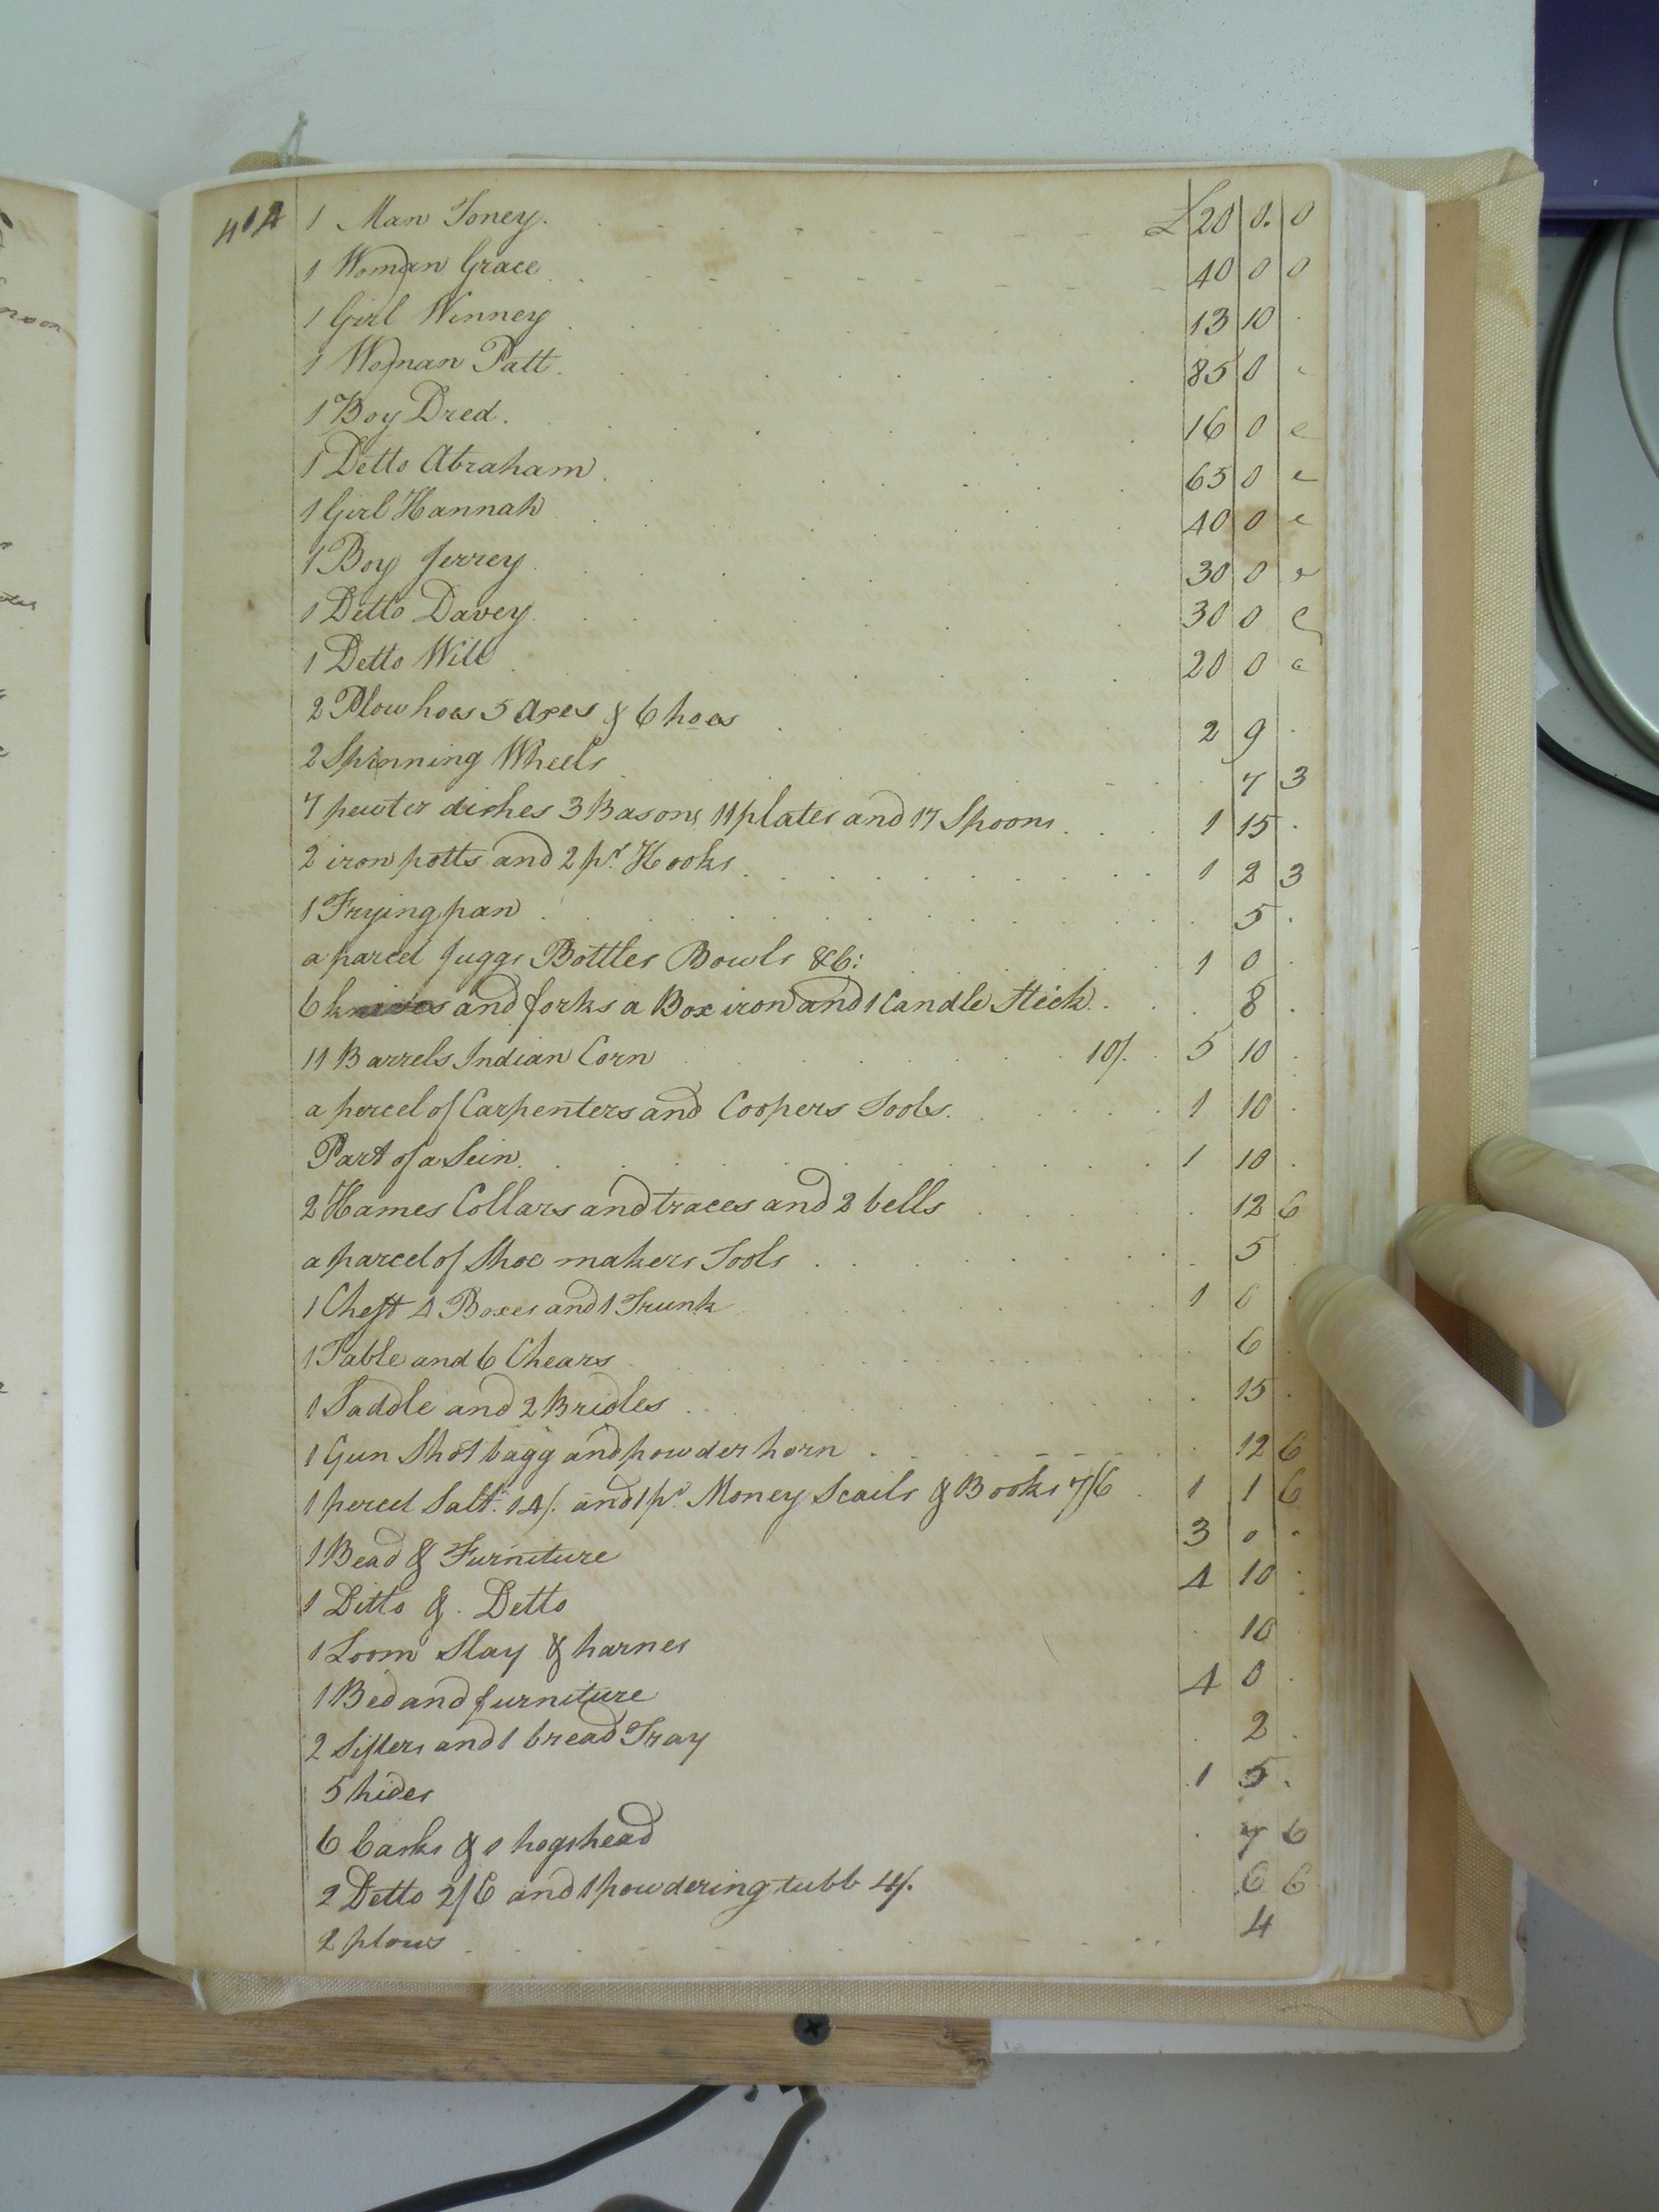 414
1 Man Toney. £20 0. 0
1 Woman Grace 40 0 0
1 Girl Winney 13 10
1 Woman Patt 85 0
1 Boy Dred. 16 0
1 Detto Abraham 65 0
1 Girl Hannah 40 0
1 Boy Jerrey 30 0
1 Detto Davey 30 0
1 Detto Will 20 0
2 Plow hoes 5 Axes & 6 hoes 2 9
2 Spinning Wheels 7 3
7 pewter dishes 3 Basons 11 plates and 17 Spoons 1 15
2 iron potts and 2 pr. Hooks 1 2 3
1 Frying pan 5
a parcel Juggs Bottles Bowls &c: 1 0
6 knives and forks a Box iron and 1 Candle Stick 8
11 Barrels Indian Corn 10/. 5 10
a percel of Carpenters and Coopers Tools 1 10
Part of a Sein 1 10
2 Hames Collars and traces and 2 bells 12 6
a parcel of Shoe makers Tools 5
1 Chest 4 Boxes and 1 Trunk 1
1 Table and 6 Chears 6
1 Saddle and 2 Bridles 15
1 Gun Shot bagg and powder horn 12 6
1 percel Salt 14/. and 1 pr. Money Scails & Books 7/6 1 1 6
1 Bead & Furniture 3 0
1 Ditto & Detto 4 10
1 Loom Slay & harnes 10
1 Bed and furniture 4 0
2 Sifters and 1 bread Tray 2
5 hides 1 5
6 Casks & 1 hogshead 7 6
2 Detto 2/6 and 1 powdering tubb 4/. 6 6
2 plows 4